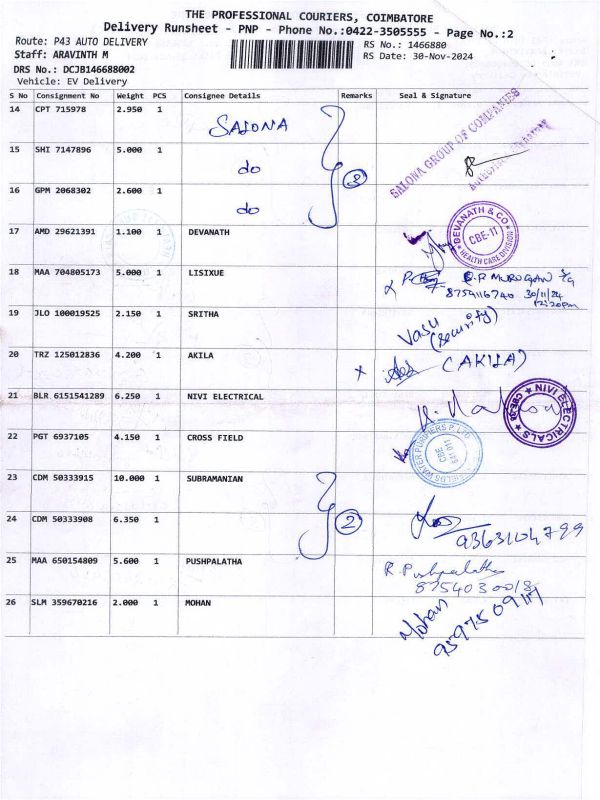 THE PROFESSIONAL COURIERS, COIMBATORE
Delivery Runsheet - PNP - Phone No.:0422-3505555 - Page No.:2
Route: P43 AUTO DELIVERY
RS No.: 1466880
Staff: ARAVINTH M
RS Date: 30-Nov-2024
DRS No.: DCJB146688002
Vehicle: EV Delivery
S No Consignment No Weight PCS Consignee Details Remarks Seal & Signature
14 CPT 715978 2.950 1 SALONA
SALONA GROUP OF COMPANIES
15 SHI 7147896 5.000 1 do
3
16 GPM 2068302 2.600 1 do
17 AMD 29621391 1.100 1 DEVANATH
DEVANATH & CO
CBE-11
HEALTH CARE DIVISION
18 MAA 704805173 5.000 1 LISIXUE
8754116740 30/11/24
12:20pm
19 JLO 100019525 2.150 1 SRITHA
Vasu
(Security)
20 TRZ 125012836 4.200 1 AKILA
x (AKILA)
21 BLR 6151541289 6.250 1 NIVI ELECTRICAL
NIVI ELECTRICALS
22 PGT 6937105 4.150 1 CROSS FIELD
FIELDS WATER PURIFIERS P. LTD.
CBE
641 011
23 CDM 50333915 10.000 1 SUBRAMANIAN
24 CDM 50333908 6.350 1
2
9363104799
25 MAA 650154809 5.600 1 PUSHPALATHA
R. Pushpalatha
8754030018
26 SLM 359670216 2.000 1 MOHAN
Mohan